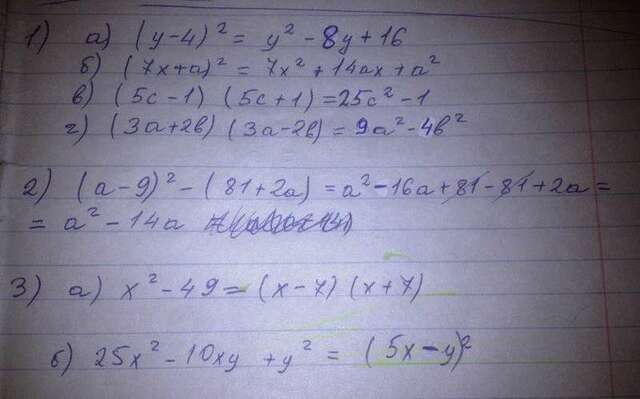 1) а) (y-4)² = y² - 8y + 16
б) (7x+a)² = 7x² + 14ax + a²
в) (5c-1) (5c+1) = 25c² - 1
г) (3a+2b) (3a-2b) = 9a² - 4b²
2) (a-9)² - (81+2a) = a² - 16a + 81 - 81 + 2a =
= a² - 14a
3) а) x² - 49 = (x-7) (x+7)
б) 25x² - 10xy + y² = (5x-y)²